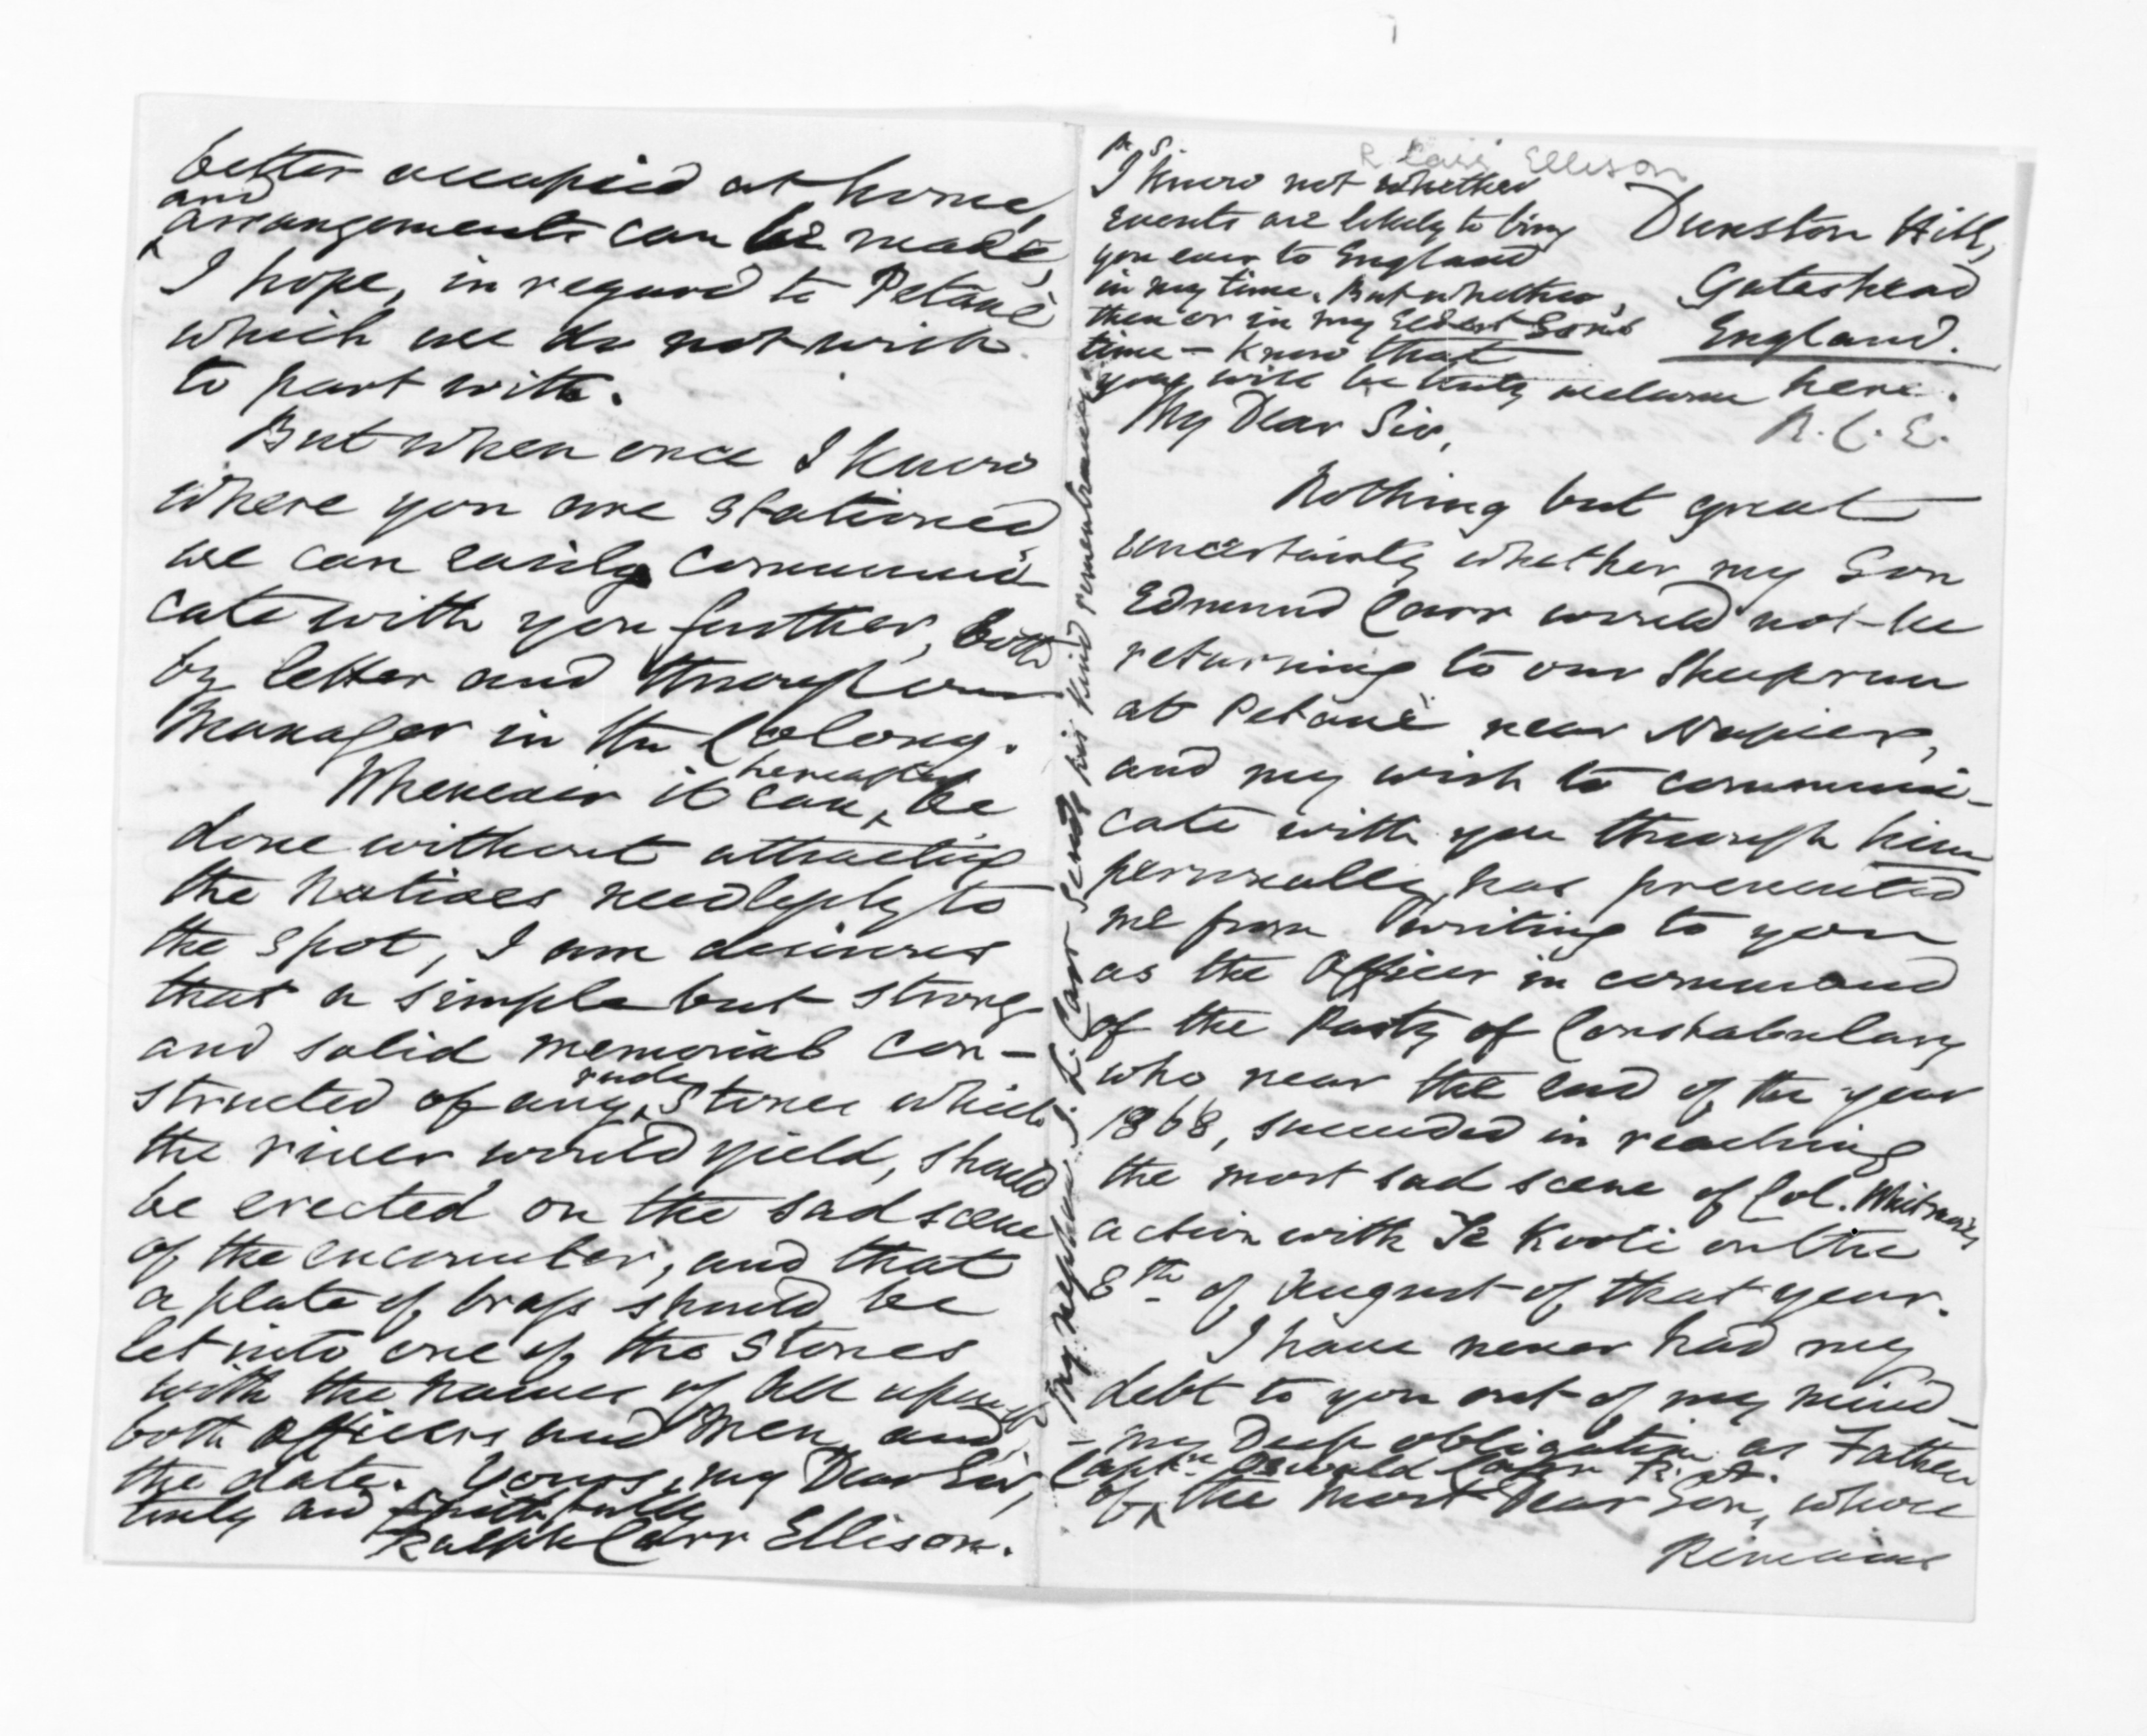 better occupied at home,
and
arrangements can be made,
I hope, in regard to Petanè
which we do not wish
to part with.
But when once I know
where you are stationed
we can easily communi-
cate with you further, both
by letter and through our
Manager in the Colony.
hereafter
Whenever it can be
done without attracting
the Natives needlessly to
the spot, I am desirous
that a simple but strong
and solid memorial con-
rude
structed of any stones which
the river would yield, should
be erected on the sad scene
of the encounter, and that
a plate of brass should be
let into one of the stones
with the names of all
both officers and men, and
the date. Yours, my Dear Sir,
truly and faithfully
Ralph Carr Ellison.
R Carr Ellison
P.S.
I know not whether
events are likely to bring
you ever to England
in my time. But whether
then or in my Eldest Son's
time - know that
you will be truly welcome here.
R. C. E.
Dunston Hill,
Gateshead
England.
My Dear Sir,
Nothing but great
uncertainty whether my Son
Edmund Carr would not be
returning to our Sheeprun
at Petanè near Napier,
and my wish to communi-
cate with you through him
personally, has prevented
me from writing to you
as the Officer in command
of the Party of Constabulary
who near the end of the year
1868, succeeded in reaching
the most sad scene of Col. Whitmore's
action with Te Kooti on the
8th of August of that year.
I have never had my
debt to you out of my mind -
- my Deep obligation as Father
Captn. Oswald Carr R. A.
of the most Dear Son, whose
Remains
My nephew J. L. Carr sends his kind remembrances